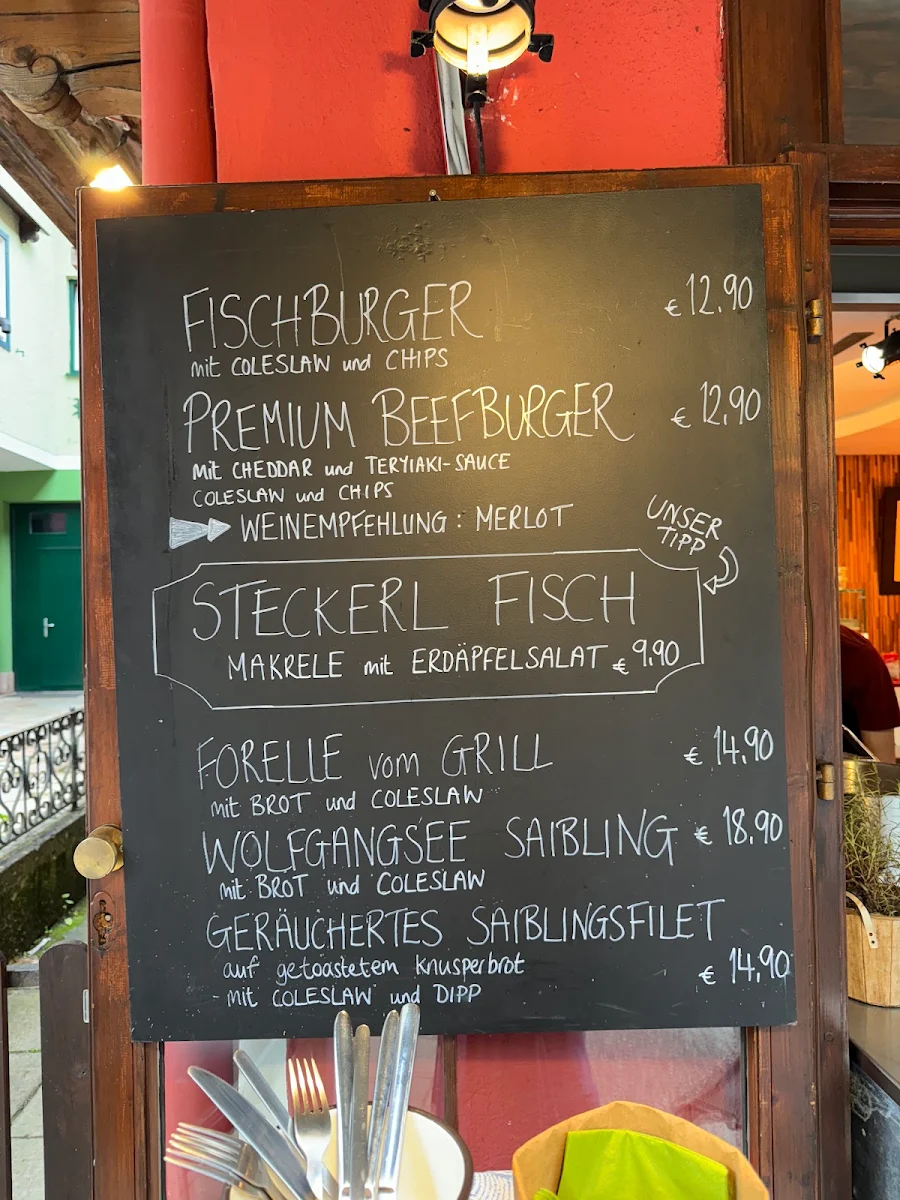 FISCHBURGER € 12.90
mit COLESLAW und CHIPS
PREMIUM BEEFBURGER € 12.90
mit CHEDDAR und TERYIAKI-SAUCE
COLESLAW und CHIPS
WEINEMPFEHLUNG: MERLOT
UNSER
TIPP
STECKERL FISCH
MAKRELE mit ERDÄPFELSALAT € 9.90
FORELLE vom GRILL € 14.90
mit BROT und COLESLAW
WOLFGANGSEE SAIBLING € 18.90
mit BROT und COLESLAW
GERÄUCHERTES SAIBLINGSFILET
auf getoastetem Knusperbrot € 14,90
- mit COLESLAW und DIPP